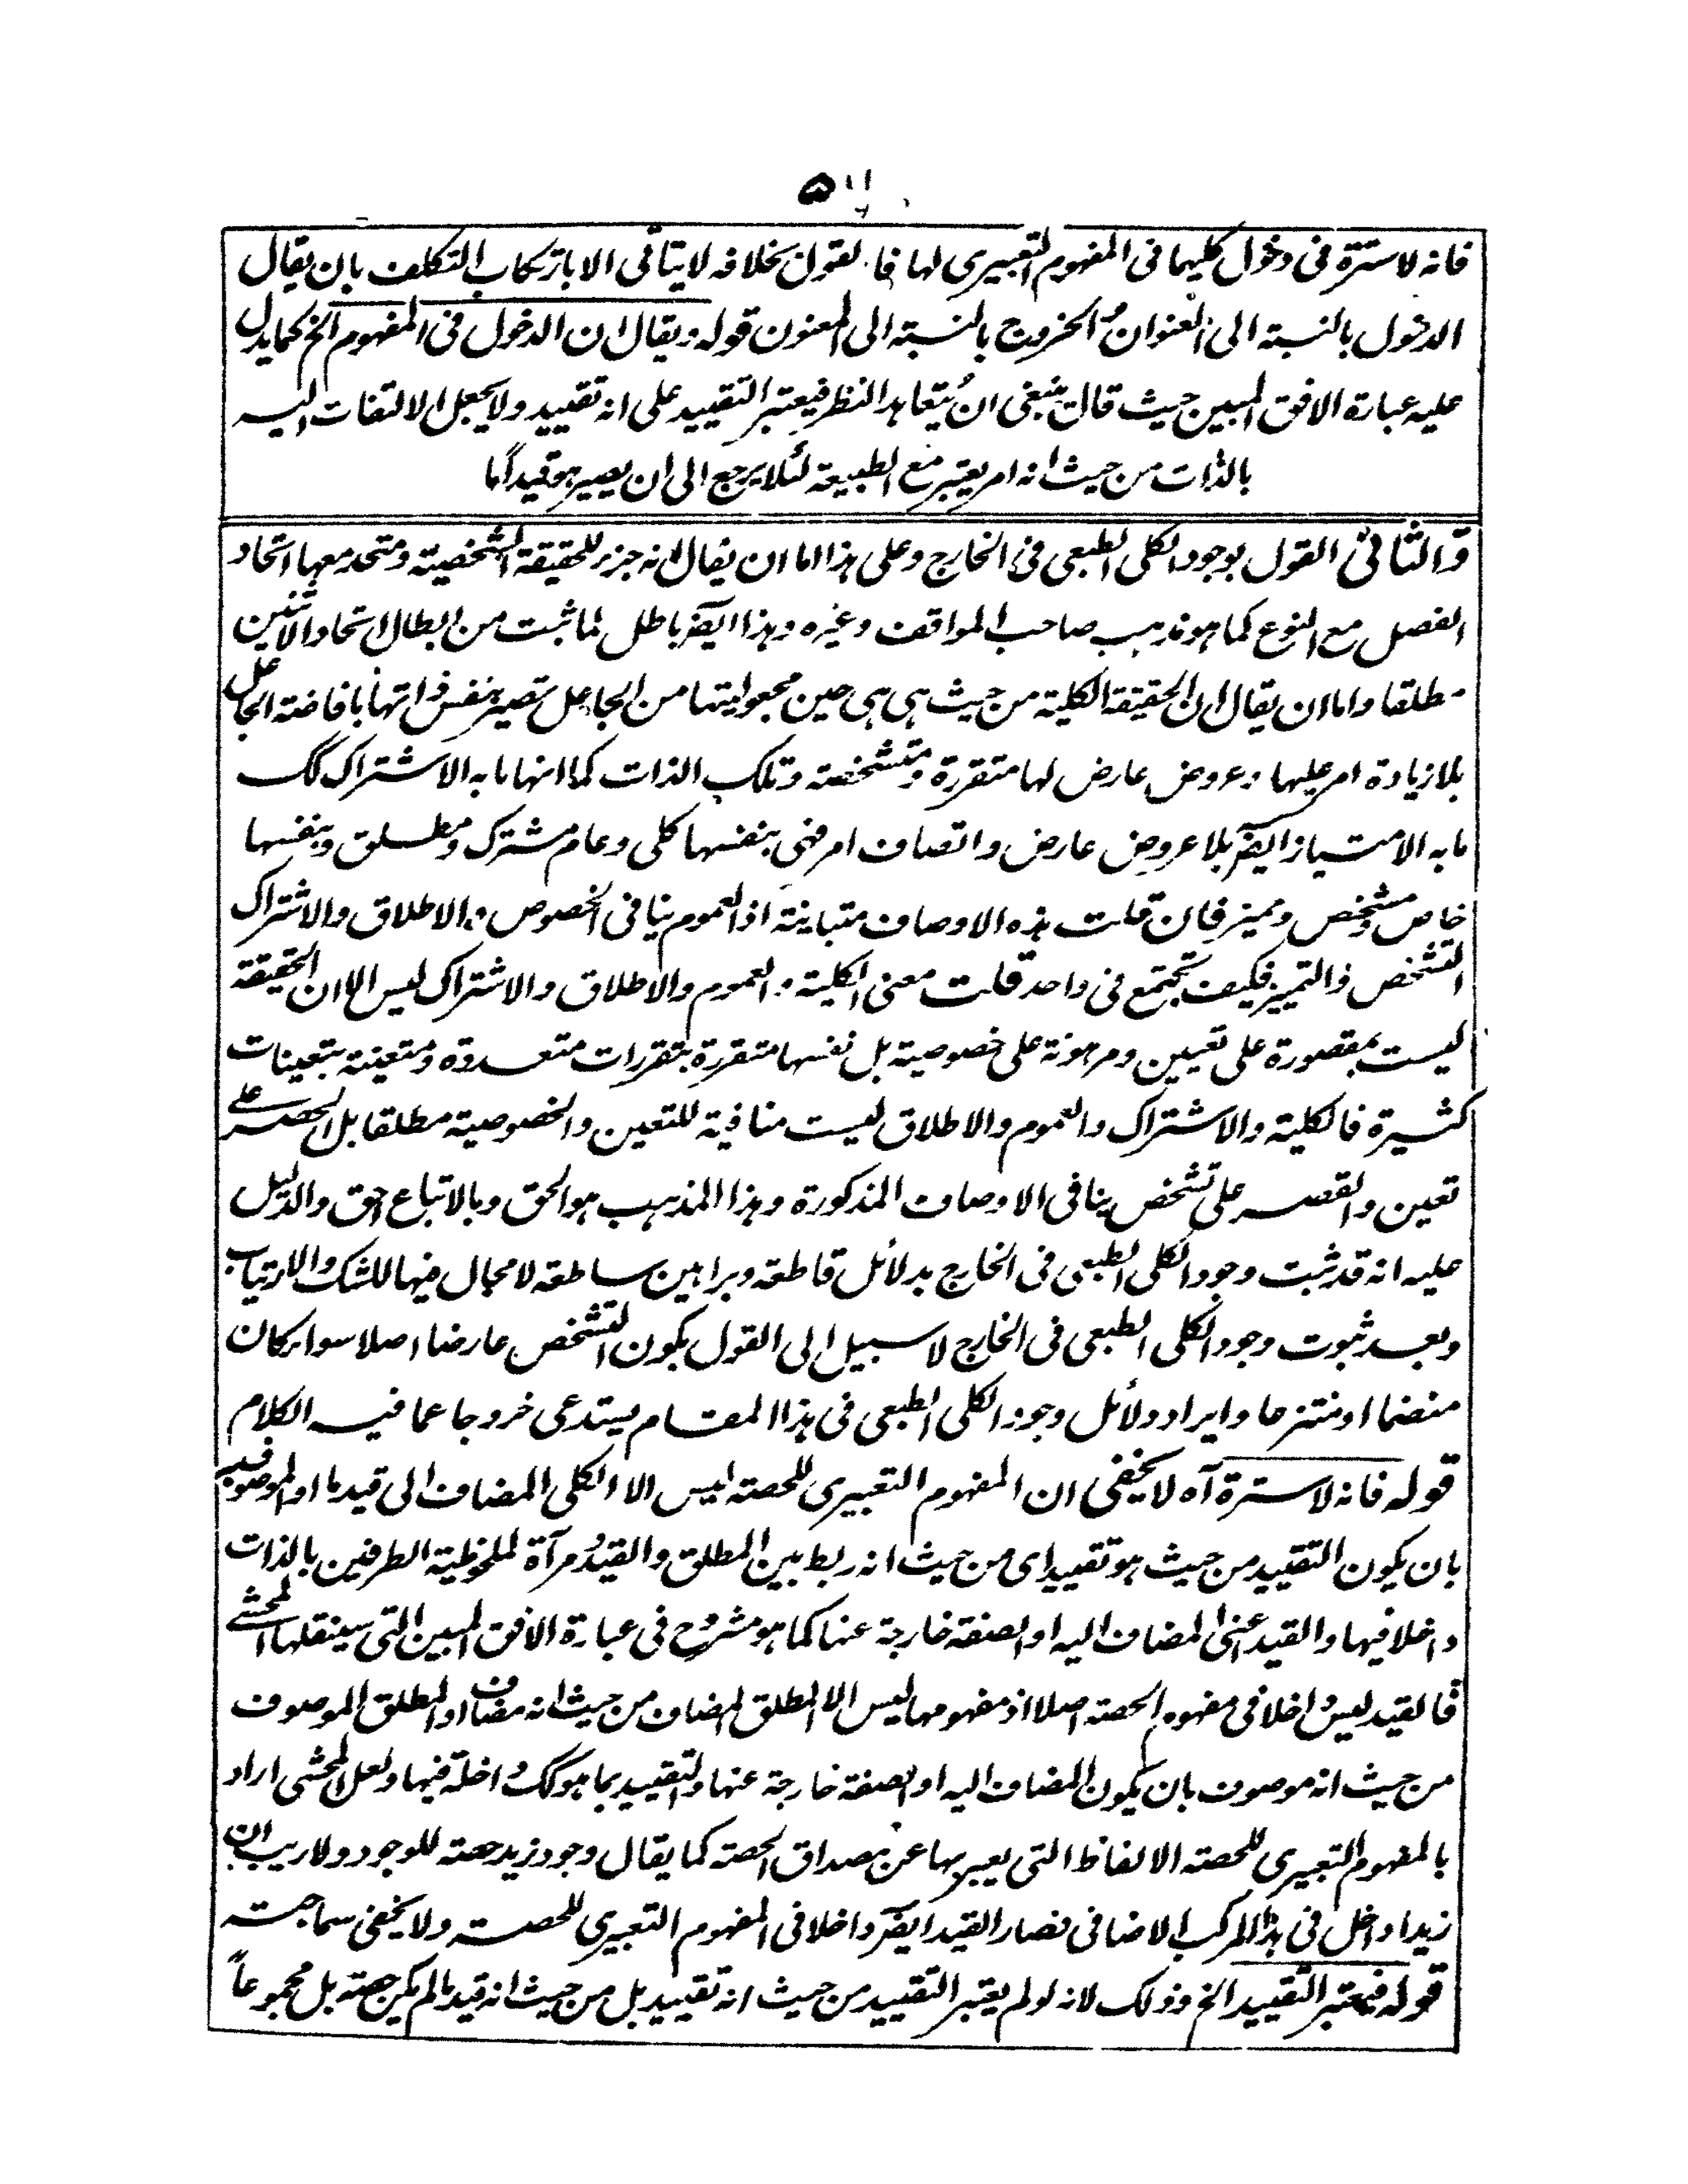 فانه لا سترة فى دخول كليهما فى المفهوم التعبيرى لها فالقول بخلافه لا يتأتى الا بارتكاب التكلف بان يقال
الدخول بالنسبة الى العنوان والخروج بالنسبة الى المعنون قوله ويقال ان الدخول فى المفهوم الخ كما يدل
عليه عبارة الافق المبين حيث قال ينبغى ان يتعاهد النظر فيعتبر التقييد على انه تقييد ولا يجعل الالتفات اليه
بالذات من حيث انه امر يعتبر مع الطبيعة لئلا يرجع الى ان يصير هو قيدا ما
والثانى القول بوجود الكلى الطبعى فى الخارج وعلى هذا اما ان يقال انه جزء للحقيقة الشخصية ومتحد معها اتحاد
الفصل مع النوع كما هو مذهب صاحب المواقف وغيره وهذا ايضا باطل لما ثبت من ابطال اتحاد الاثنين
مطلقا واما ان يقال ان الحقيقة الكلية من حيث هى هى حين مجعوليتها من الجاعل تصير بنفس ذاتها بافاضة الجاعل
بلا زيادة امر عليها وعروض عارض لها متقررة ومتشخصة وتلك الذات كما انها ما به الاشتراك كك
ما به الامتياز ايضا بلا عروض عارض واتصاف امر فهى بنفسها كلى وعام مشترك ومطلق وبنفسها
خاص مشخص ومميز فان قلت هذه الاوصاف متباينة اذ العموم ينافى الخصوص والاطلاق والاشتراك
التشخص والتميز فكيف تجتمع فى واحد قلت معنى الكلية والعموم والاطلاق والاشتراك ليس الا ان الحقيقة
ليست بمقصورة على تعيين ومرهونة على خصوصية بل نفسها متقررة بتقررات متعددة ومتعينة بتعينات
كثيرة فالكلية والاشتراك والعموم والاطلاق ليست منافية للتعين والخصوصية مطلقا بل الحصر على
تعين والقصر على تشخص ينافى الاوصاف المذكورة وهذا المذهب هو الحق وبالاتباع احق والدليل
عليه انه قد ثبت وجود الكلى الطبعى فى الخارج بدلائل قاطعة وبراهين ساطعة لا مجال فيها للشك والارتياب
وبعد ثبوت وجود الكلى الطبعى فى الخارج لا سبيل الى القول بكون التشخص عارضا اصلا سواء كان
منضما او منتزعا وايراد دلائل وجود الكلى الطبعى فى هذا المقام يستدعى خروجا عما فيه الكلام
قوله فانه لا سترة آه لا يخفى ان المفهوم التعبيرى للحصة ليس الا الكلى المضاف الى قيد ما او الموصوف به
بان يكون التقييد من حيث هو تقييد اى من حيث انه ربط بين المطلق والقيد ومرآة لملحوظية الطرفين بالذات
داخلا فيها والقيد اعنى المضاف اليه او الصفة خارجة عنها كما هو مشروح فى عبارة الافق المبين التى سينقلها المحشى
فالقيد ليس داخلا فى مفهوم الحصة اصلا اذ مفهومها ليس الا المطلق المضاف من حيث انه مضاف او المطلق الموصوف
من حيث انه موصوف بان يكون المضاف اليه او الصفة خارجة عنها والتقييد بما هو كك داخلة فيها ولعل المحشى اراد
بالمفهوم التعبيرى للحصة الالفاظ التى يعبر بها عن مصداق الحصة كما يقال وجود زيد حصة للوجود ولا ريب ان
زيدا داخل فى هذا المركب الاضافى فصار القيد ايضا داخلا فى المفهوم التعبيرى للحصة ولا يخفى سماجته
قوله فيعتبر التقييد الخ وذلك لانه لو لم يعتبر التقييد من حيث انه تقييد بل من حيث انه قيد ما لم يكن حصة بل مجموعاً